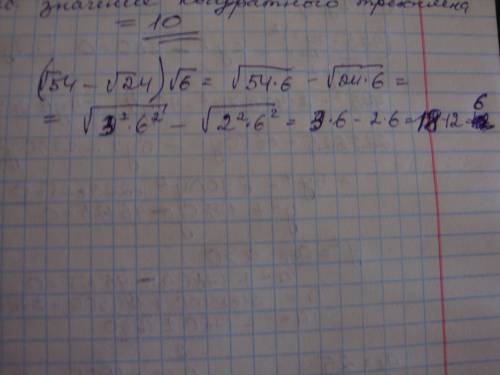 значение квадратного трехчлена
= 10
(√54 - √24)√6 = √54·6 - √24·6 =
= √3²·6² - √2²·6² = 3·6 - 2·6 = 18-12 = 6